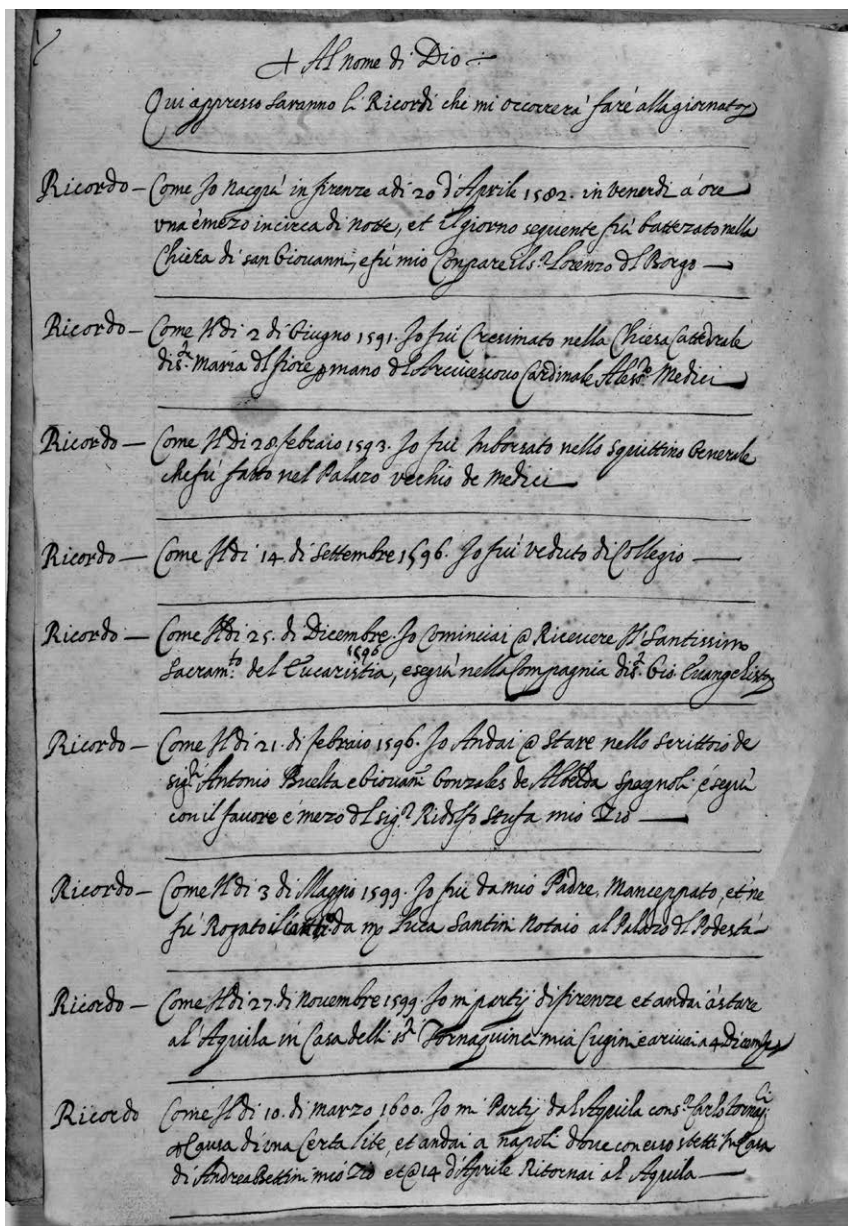 + Al nome di Dio
Qui appresso saranno li Ricordi che mi occorrerà fare alla giornata
Ricordo – Come Jo nacqui in firenze adi 20 d'Aprile 1582. in venerdi a ore
vna è mezo incirca di notte, et Il giorno seguente fui battezato nella
Chiesa di san Giovanni, e fù mio Compare il s.r Lorenzo dl Borgo
Ricordo – Come Il di 2 di Giugno 1591. Jo fui Cresimato nella Chiesa Cattedrale
di s.ta Maria dl fiore p mano dl Arcivescovo Cardinale Aless.o Medici
Ricordo – Come Il di 28 febraio 1593. Jo fui Inborsato nello squittino Generale
che fu fatto nel Palazo vechio de Medici
Ricordo – Come Il di 14 di Settembre 1596. Jo fui veduto di Collegio
Ricordo – Come Il di 25. di Dicembre 1596 Jo Cominciai @ Ricevere Il Santissimo
Sacram.to del Eucaristia, e seguì nella Compagnia di s. Gio Euangelista
Ricordo – Come Il di 21. di febraio 1596. Jo Andai @ stare nello scrittoio de
sig.ri Antonio Buelta e Giovan Gonzales de Albelda spagnoli, è seguì
con il favore è mezo dl sig.r Ridolfo Stufa mio Zio
Ricordo – Come Il di 3 di Maggio 1599. Jo fui da mio Padre, Manceppato, et ne
fù Rogato da Luca Santini Notaio al Palazo dl Podestà
Ricordo – Come Il di 27. di novembre 1599. Jo mi partij di firenze et andai à stare
al'Aquila in Casa delli ss.ri Tornaquinci mia Cugini e arivai a 4 Dicembre
Ricordo Come Il di 10. di marzo 1600. Jo mi Partij dal Aquila con s.r Carlo
Causa di vna Certa lite, et andai a napoli dove con esso stetti In Casa
di Andrea Bettini mio Zio et @ 14 d'Aprile Ritornai al Aquila